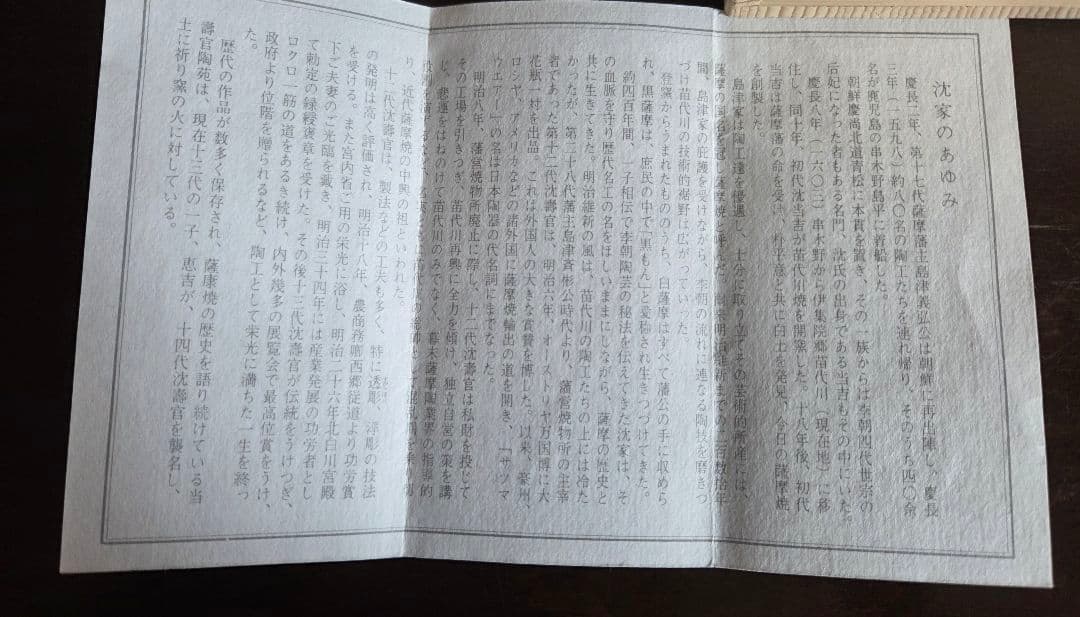 沈家のあゆみ
慶長二年、第十七代薩摩藩主島津義弘公は朝鮮に再出陣し、慶長
三年(一五九八)約八〇名の陶工たちを連れ帰り、そのうち四〇余
名が鹿児島の串木野島平に着船した。
朝鮮慶尚北道青松に本貫を置き、その一族からは李朝四代世宗の
后妃になった者もある名門、沈氏の出身である当吉もその中にいた。
慶長八年(一六〇三)串木野から伊集院郷苗代川(現在地)に移
住し、同十年、初代沈当吉が苗代川焼を開窯した。十八年後、初代
当吉は薩摩藩の命を受け、朴平意と共に白土を発見、今日の薩摩焼
を創製した。
島津家は陶工達を優遇し、十分に取り立てその芸術的所産には、
薩摩の国名を冠し薩摩焼と呼んだ。明治維新までの二百数拾年
間、島津家の庇護を受けながら、李朝の流れに連なる陶技を磨きつ
づけ苗代川の技術的裾野は広がっていった。
登窯からうまれたもののうち、白薩摩はすべて藩公の手に収めら
れ、黒薩摩は、庶民の中で「黒もん」と愛称され生きつづけてきた。
約四百年間、一子相伝で李朝陶芸の秘法を伝えてきた沈家は、そ
の血脈を守り歴代名工の名をほしいままにしながら、薩摩の歴史と
共に生きてきた。明治維新の風は、苗代川の陶工たちの上には冷た
かったが、第二十八代藩主島津斉彬公時代より、藩営焼物所の主宰
者であった第十二代沈壽官は、明治六年、オーストリヤ万国博に大
花瓶一対を出品。これは外国人の大きな賞賛を博した。以来、豪州、
ロシヤ、アメリカなどの諸外国に薩摩焼輸出の道を開き、「サツマ
ウエアー」の名は日本陶器の代名詞にまでなった。
明治八年、藩営焼物所廃止に際し、十二代沈壽官は私財を投じて
その工場を引きつぎ、苗代川再興に全力を傾け、独立自営の策を講
じ、悲運をはねのけて苗代川のみでなく、幕末薩摩陶業界の指導的
り、近代薩摩焼の中興の祖といわれた。
十二代沈壽官は、製法などの工夫も多く、特に透彫、浮彫の技法
の発明は高く評価され、明治十八年、農商務卿西郷従道より功労賞
を受ける。また宮内省ご用の栄光に浴し、明治二十六年北白川宮殿
下ご夫妻のご光臨を戴き、明治三十四年には産業発展の功労者とし
て勅定の緑綬褒章を受けた。その後十三代沈壽官が伝統をうけつぎ、
ロクロ一筋の道をあるき続け、内外幾多の展覧会で最高位賞をうけ、
政府より位階を贈られるなど、陶工として栄光に満ちた一生を終っ
た。
歴代の作品が数多く保存され、薩摩焼の歴史を語り続けている当
壽官陶苑は、現在十三代の一子、恵吉が、十四代沈壽官を襲名し、
土に祈り窯の火に対している。